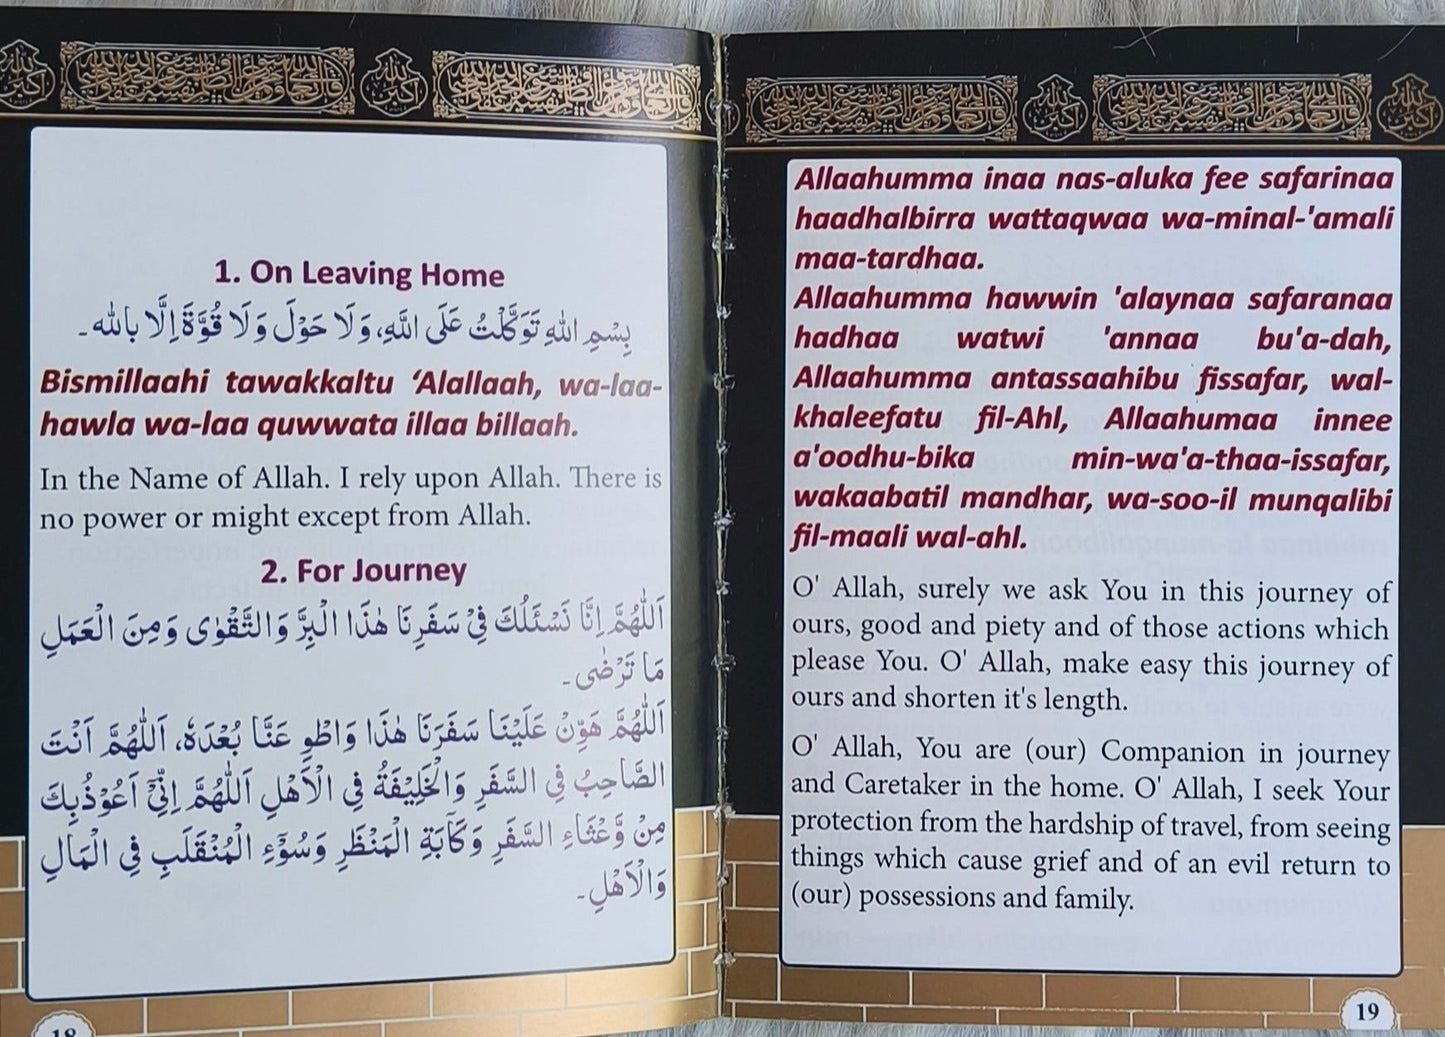 1. On Leaving Home
بِسْمِ اللهِ تَوَكَّلْتُ عَلَى اللَّهِ، وَلَا حَوْلَ وَلَا قُوَّةَ اِلَّا بِالله۔
Bismillaahi tawakkaltu ‘Alallaah, wa-laa-
hawla wa-laa quwwata illaa billaah.
In the Name of Allah. I rely upon Allah. There is
no power or might except from Allah.
2. For Journey
اَللّٰهُمَّ اِنَّا نَسْئَلُكَ فِيْ سَفَرِنَا هٰذَا الْبِرَّ وَالتَّقْوٰى وَمِنَ الْعَمَلِ
مَا تَرْضٰى۔
اَللّٰهُمَّ هَوِّنْ عَلَيْنَا سَفَرَنَا هٰذَا وَاطْوِ عَنَّا بُعْدَهٗ، اَللّٰهُمَّ اَنْتَ
الصَّاحِبُ فِي السَّفَرِ وَالْخَلِيْفَةُ فِي الْاَهْلِ اَللّٰهُمَّ اِنِّيْٓ اَعُوْذُبِكَ
مِنْ وَّعْثَاءِ السَّفَرِ وَكَآبَةِ الْمَنْظَرِ وَسُوْٓءِ الْمُنْقَلَبِ فِي الْمَالِ
وَالْاَهْلِ۔
18
Allaahumma inaa nas-aluka fee safarinaa
haadhalbirra wattaqwaa wa-minal-'amali
maa-tardhaa.
Allaahumma hawwin 'alaynaa safaranaa
hadhaa watwi 'annaa bu'a-dah,
Allaahumma antassaahibu fissafar, wal-
khaleefatu fil-Ahl, Allaahumaa innee
a'oodhu-bika min-wa'a-thaa-issafar,
wakaabatil mandhar, wa-soo-il munqalibi
fil-maali wal-ahl.
O' Allah, surely we ask You in this journey of
ours, good and piety and of those actions which
please You. O' Allah, make easy this journey of
ours and shorten it's length.
O' Allah, You are (our) Companion in journey
and Caretaker in the home. O' Allah, I seek Your
protection from the hardship of travel, from seeing
things which cause grief and of an evil return to
(our) possessions and family.
19